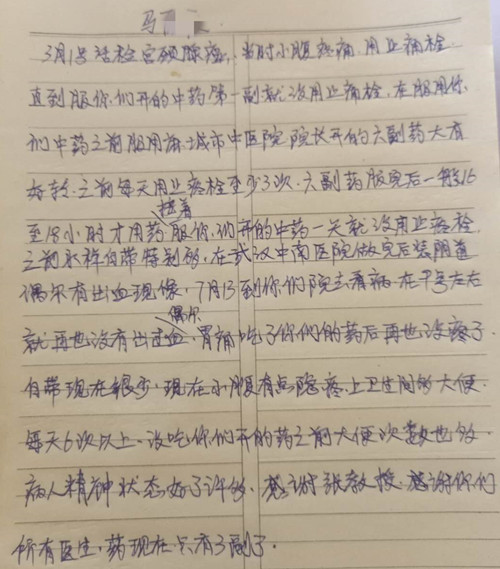 马
3月1号活检宫颈腺癌，当时小腹疼痛，用止痛栓
直到服你们开的中药第一副就没用止痛栓，在服用你
们中药之前服用麻城市中医院院长开的六副药大有
好转，之前每天用止疼栓至少3次，六副药服完后一般16
至18小时才用药，接着服你们开的中药一天就没用止疼栓
之前水样白带特别多，在武汉中南医院做完后装阴道
偶尔有出血现像，7月13到你们院去看病，在 号左右
就再也没有出过血，偶尔胃痛吃了你们的药后再也没疼了
白带现在很少，现在小腹有点隐疼，上卫生间多大便
每天6次以上，没吃你们开的药之前大便次数也多
病人精神状态好了许多，感谢张教授，感谢你们
所有医生，药现在只有3副了.